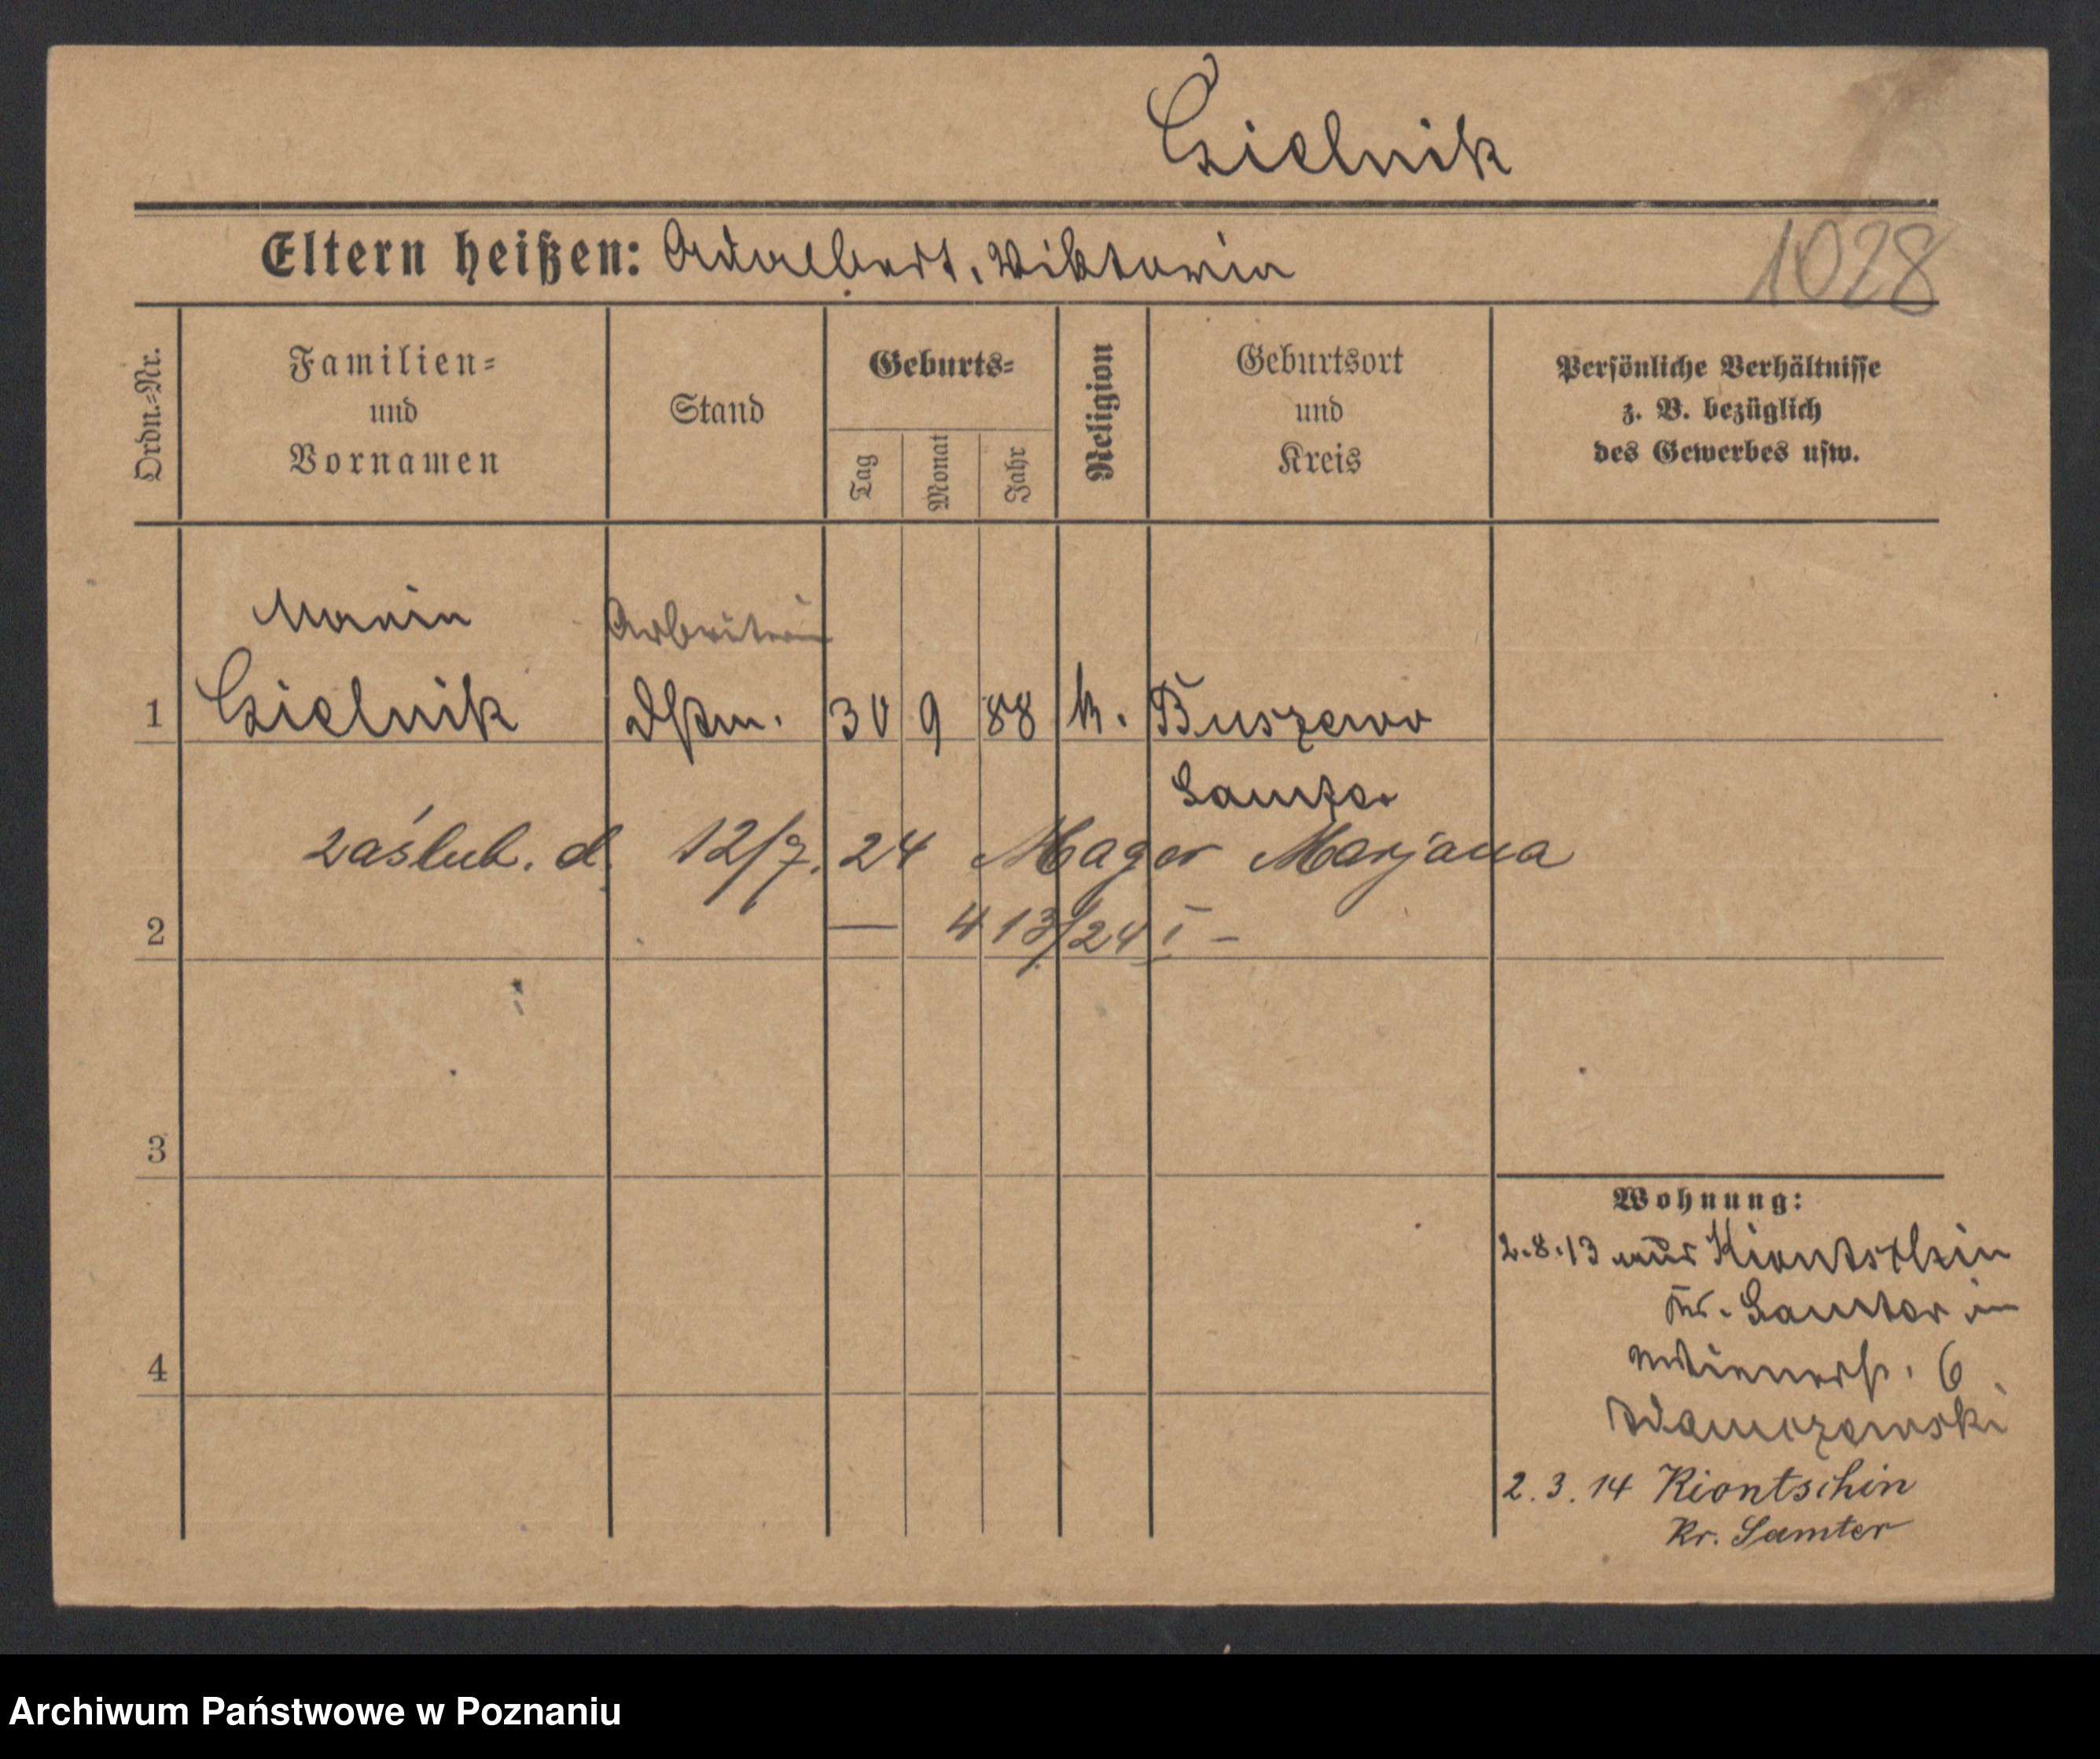 Czielnik
Eltern heißen: Adalbert, Viktoria
1028
Ordn.=Nr.
Familien=
und
Vornamen
Stand
Geburts=
Tag
Monat
Jahr
Religion
Geburtsort
und
Kreis
Persönliche Verhältnisse
z. B. bezüglich
des Gewerbes usw.
Maria
Arbeiterin
1 Czielnik Dstm. 30 9 88 k. Buszewo
Samter
zaślub. d. 12/7. 24 Mager Marjana
2 — 413/24 I –
3
Wohnung:
2.8.13 aus Kiontschin
Kr. Samter in
6
4
Adamczewski
2.3.14 Kiontschin
Kr. Samter
Archiwum Państwowe w Poznaniu